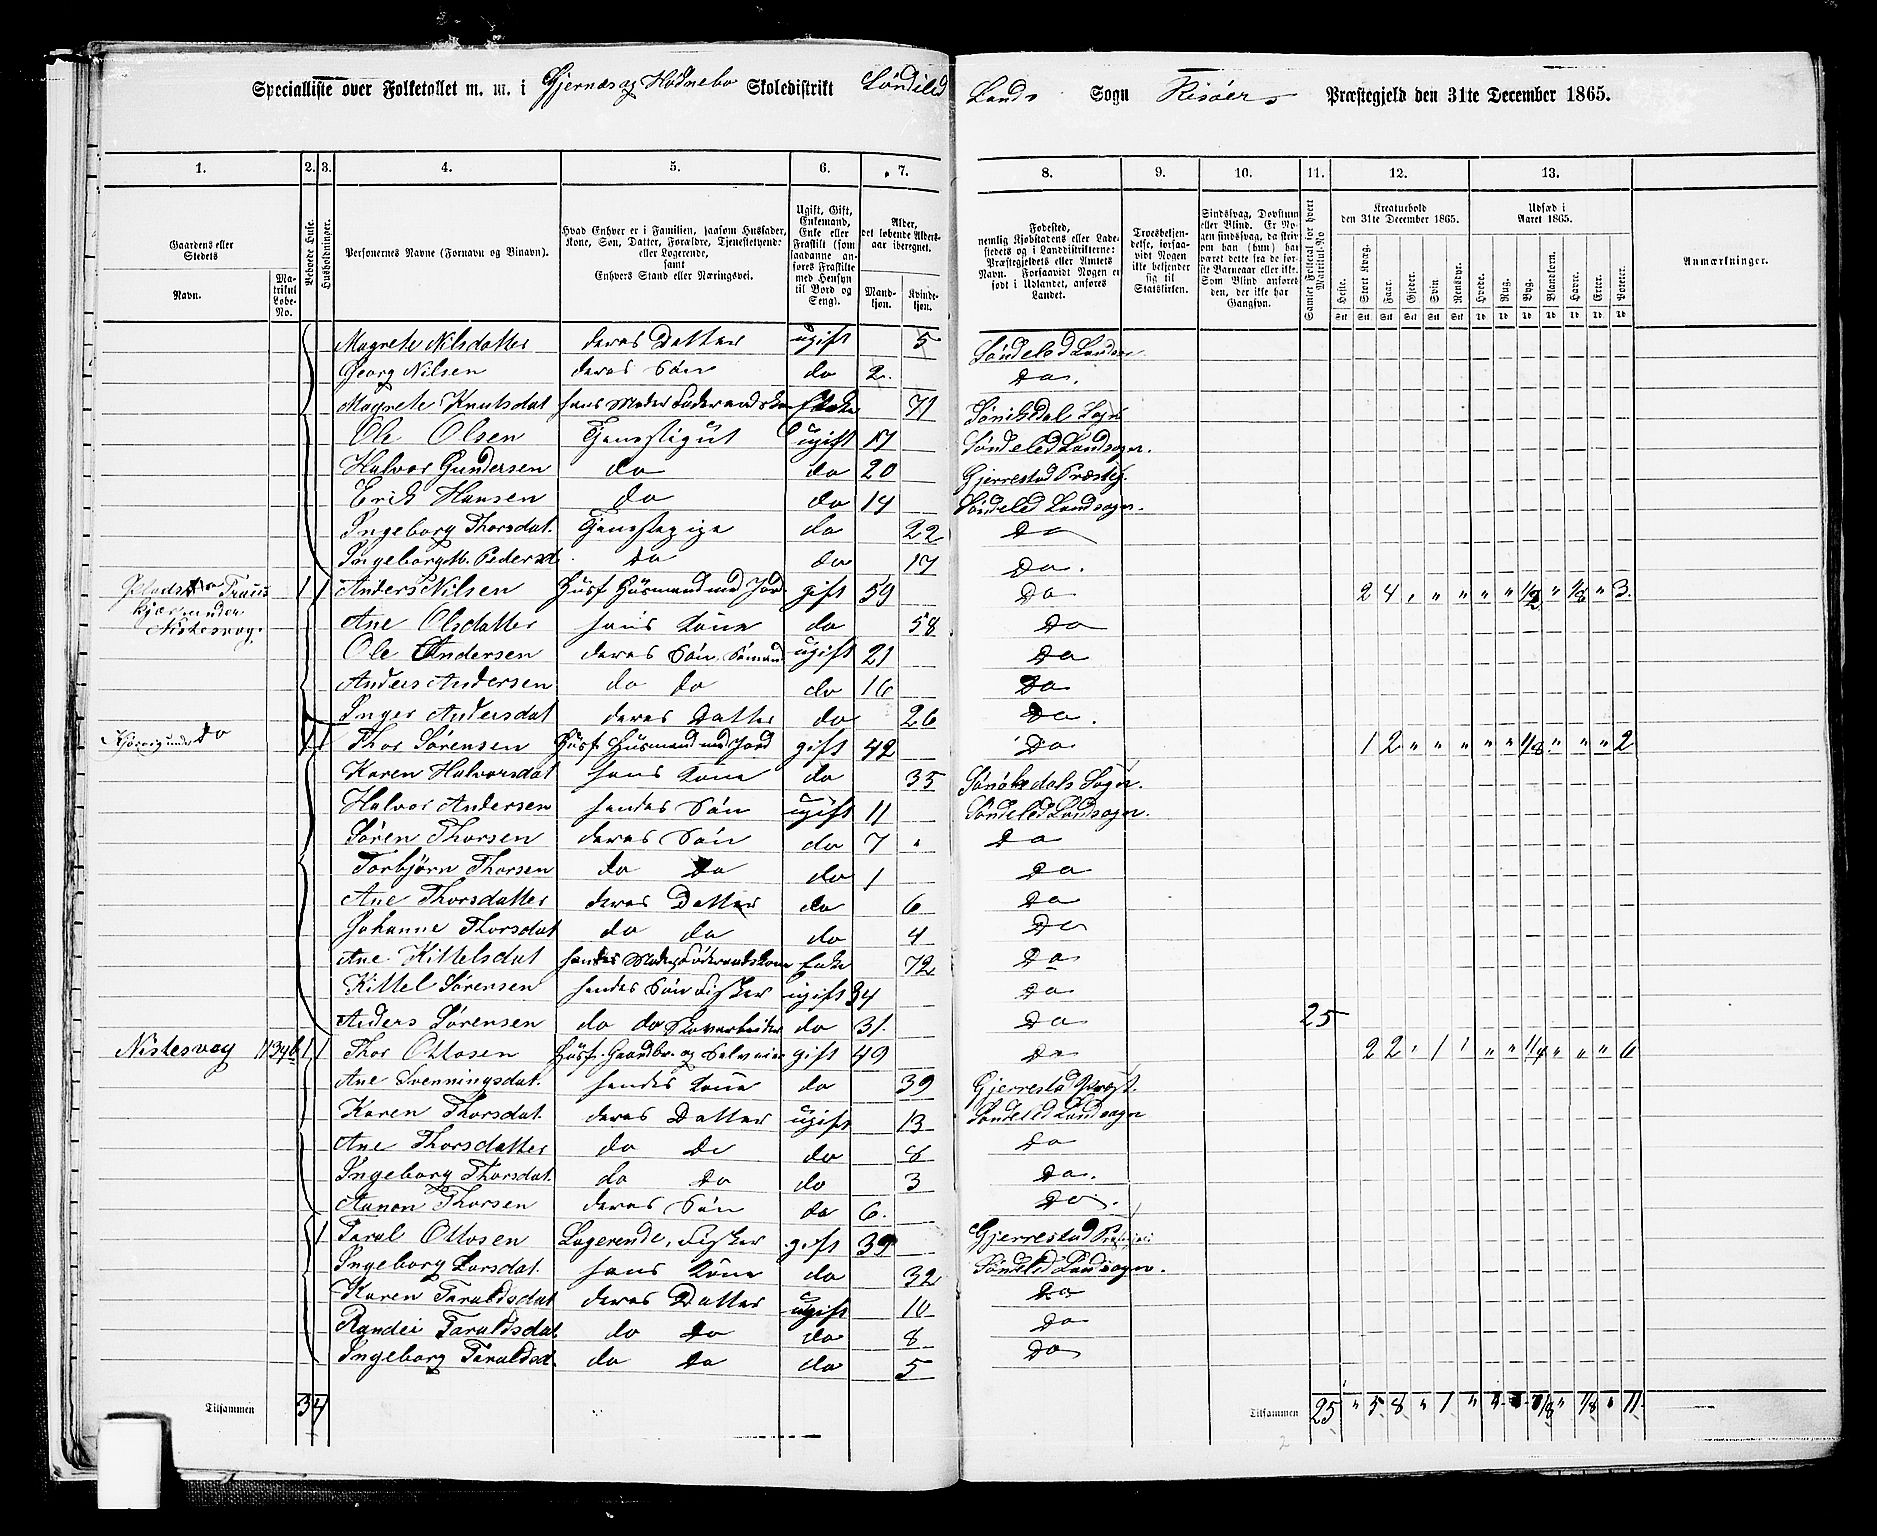 Specialliste over Folketallet m. m. i Gjernes og Hødnebo Skoledistrikt Søndeled Lands Sogn Risøers Præstegjeld den 31te December 1865.
1. 2. 3. 4. 5. 6. 7. 8. 9. 10. 11. 12. 13.
Gaardens eller Stedets Navn. Matrikul Løbe-No. Beboede Huse. Husholdninger. Personernes Navne (Fornavn og Binavn).
Hvad Enhver er i Familien, saasom Husfader, Kone, Søn, Datter, Forældre, Tjenestetyende eller Logerende, samt Enhvers Stand eller Næringsvei.
Ugift, Gift, Enkemand, Enke eller Fraskilt (som saadanne anføres Fraskilte med Hensyn til Bord og Seng).
Alder, det løbende Aldersaar iberegnet. Mandkjøn. Kvindekjøn.
Fødested, nemlig Kjøbstadens eller Ladestedets og i Landdistrikterne: Præstegjeldets eller Amtets Navn. Forsaavidt Nogen er født i Udlandet, anføres Landet.
Troesbekjendelse, forsaavidt Nogen ikke bekjender sig til Statskirken.
Sindssvag, Døvstum eller Blind. Er Nogen sindssvag, da skrives om han (hun) har været dette fra de første Barneaar eller ikke. Som Blind anføres den, der ikke har Gangsyn.
Samlet Folketal for hvert Matrikul-No
Kreaturhold den 31te December 1865. Heste. Stort Kvæg. Faar. Gjeder. Svin. Rensdyr.
Udsæd i Aaret 1865. Hvede. Rug. Byg. Blandkorn. Havre. Erter. Poteter.
Anmærkninger.
Magrete Nilsdatter deres Datter ugift 5 Søndeled Landsogn
Georg Nilsen deres Søn do 2 Do.
Magrete Knutsdat hans Moder Føderaadskone Enke 71
Ole Olsen Tjenestegut ugift 17 Søndeled Landsogn.
Halvor Gundersen do do 20 Gjerrestad Præsteg.
Erik Hansen do do 14 Søndeled Landsogn.
Ingeborg Thorsdat. Tjenestepige do 22 Do
Ingeborg M. Pedersd. do do 17 Do.
Plads
Kjær under Nistesvag. 1 1 Anders Nilsen Husf Husmand med Jord gift 59 Do 2 4 " " " " " 1/2 " 1/8 " 3
Ane Olsdatter hans Kone do 58 Do
Ole Andersen deres Søn, Sømand ugift 21 Do
Anders Andersen do do do 16 Do
Inger Andersdat deres Datter do 26 Do.
under Do 1 1 Thor Sørensen Husf Husmand med Jord gift 42 Do 1 2 " " " " " 1/8 " " " 2
Karen Halvorsdat hans Kone do 35
Halvor Andersen hendes Søn ugift 11 Søndeled Landsogn.
Søren Thorsen deres Søn do 7 Do
Torbjørn Thorsen do Do do 1 Do
Ane Thorsdatter deres Datter do 6 Do
Johanne Thorsdat do do do 4 Do
Ane Kittelsdat hendes Moder, Føderaadskone Enke 72 Do
Kittel Sørensen hendes Søn Fisker ugift 34 Do
Anders Sørensen do do Skovarbeider do 31. Do 25
Nistesvag 1 1 Thor Ottosen Husf. Gaardbr. og Selveier gift 49 Do 2 2 " 1 " " " 1/4 " " " 6
Ane Svenningsdat. hendes Kone do 39 Gjerrestad Præst.
Karen Thorsdat. deres Datter ugift 13 Søndeled Landsogn
Ane Thorsdatter do Do do 8 Do
Ingeborg Thorsdat. do Do do 3 Do.
Aanon Thorsen deres Søn do 6. Do.
1 Taral Ottosen Logerende, Fisker gift 39 Gjerrestad
Ingeborg Larsdat. hans Kone do 32 Søndeled Landsogn.
Karen Taraldsdat deres Datter ugift 10 Do
Randei Taraldsdat do Do do 8 Do
Ingeborg Taraldsd. do Do do 5 Do
Tilsammen 3 4 Tilsammen 25 " 5 8 " 1 " " " 7/8 " 1/8 " 11.